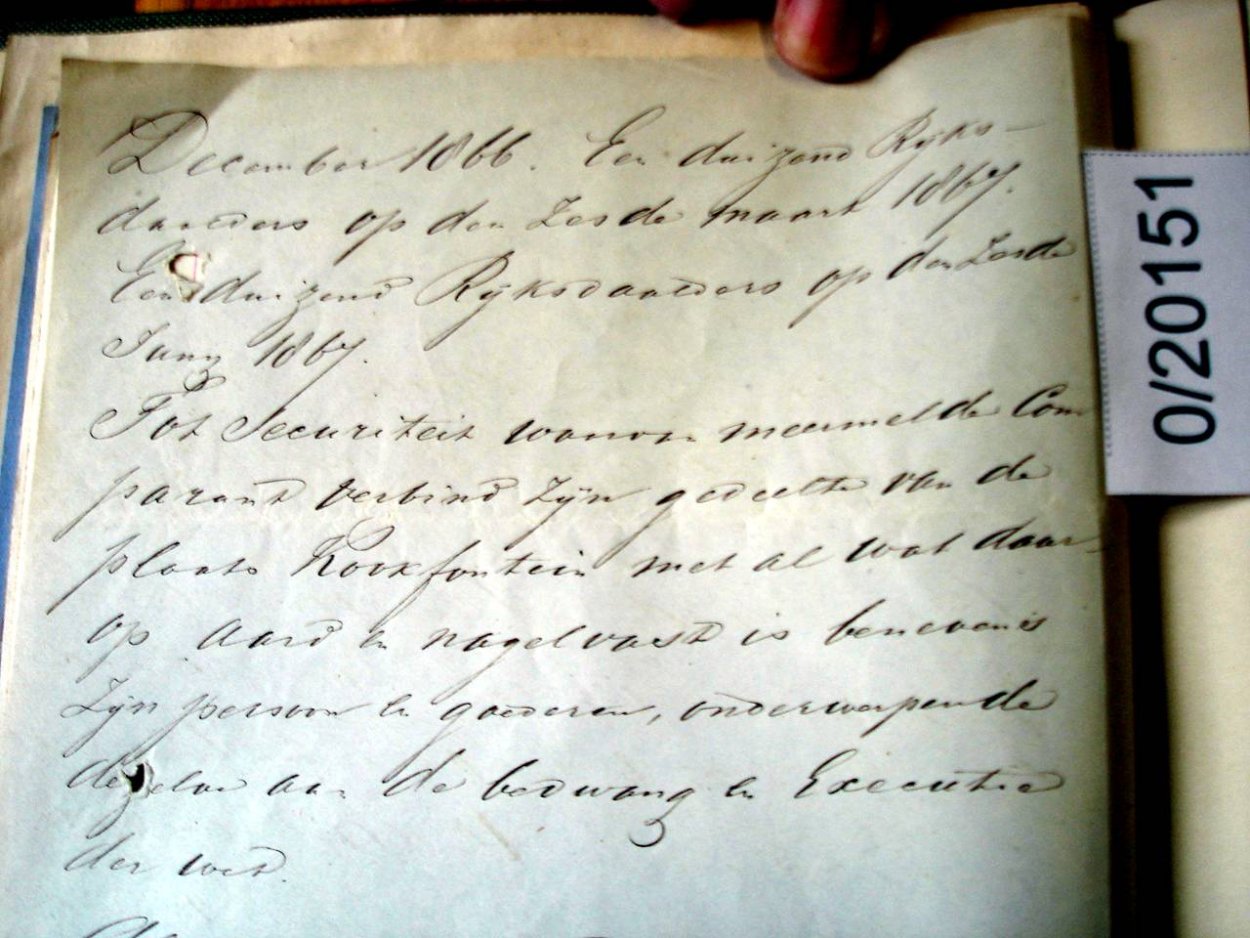 December 1866. Een duizend Ryks-
daalders op den Zesde maart 1867.
Een duizend Ryksdaalders op den Zesde
Juny 1867.
Tot Securiteit waarvan meermelde Com
parant verbind Zyn gedeelte van de
plaats Rookfontein met al wat daar-
op aard en nagelvast is benevens
Zyn persoon en goederen, onderwerpende
dezelve aan de bedwang en Executie
der wet.
0/20151